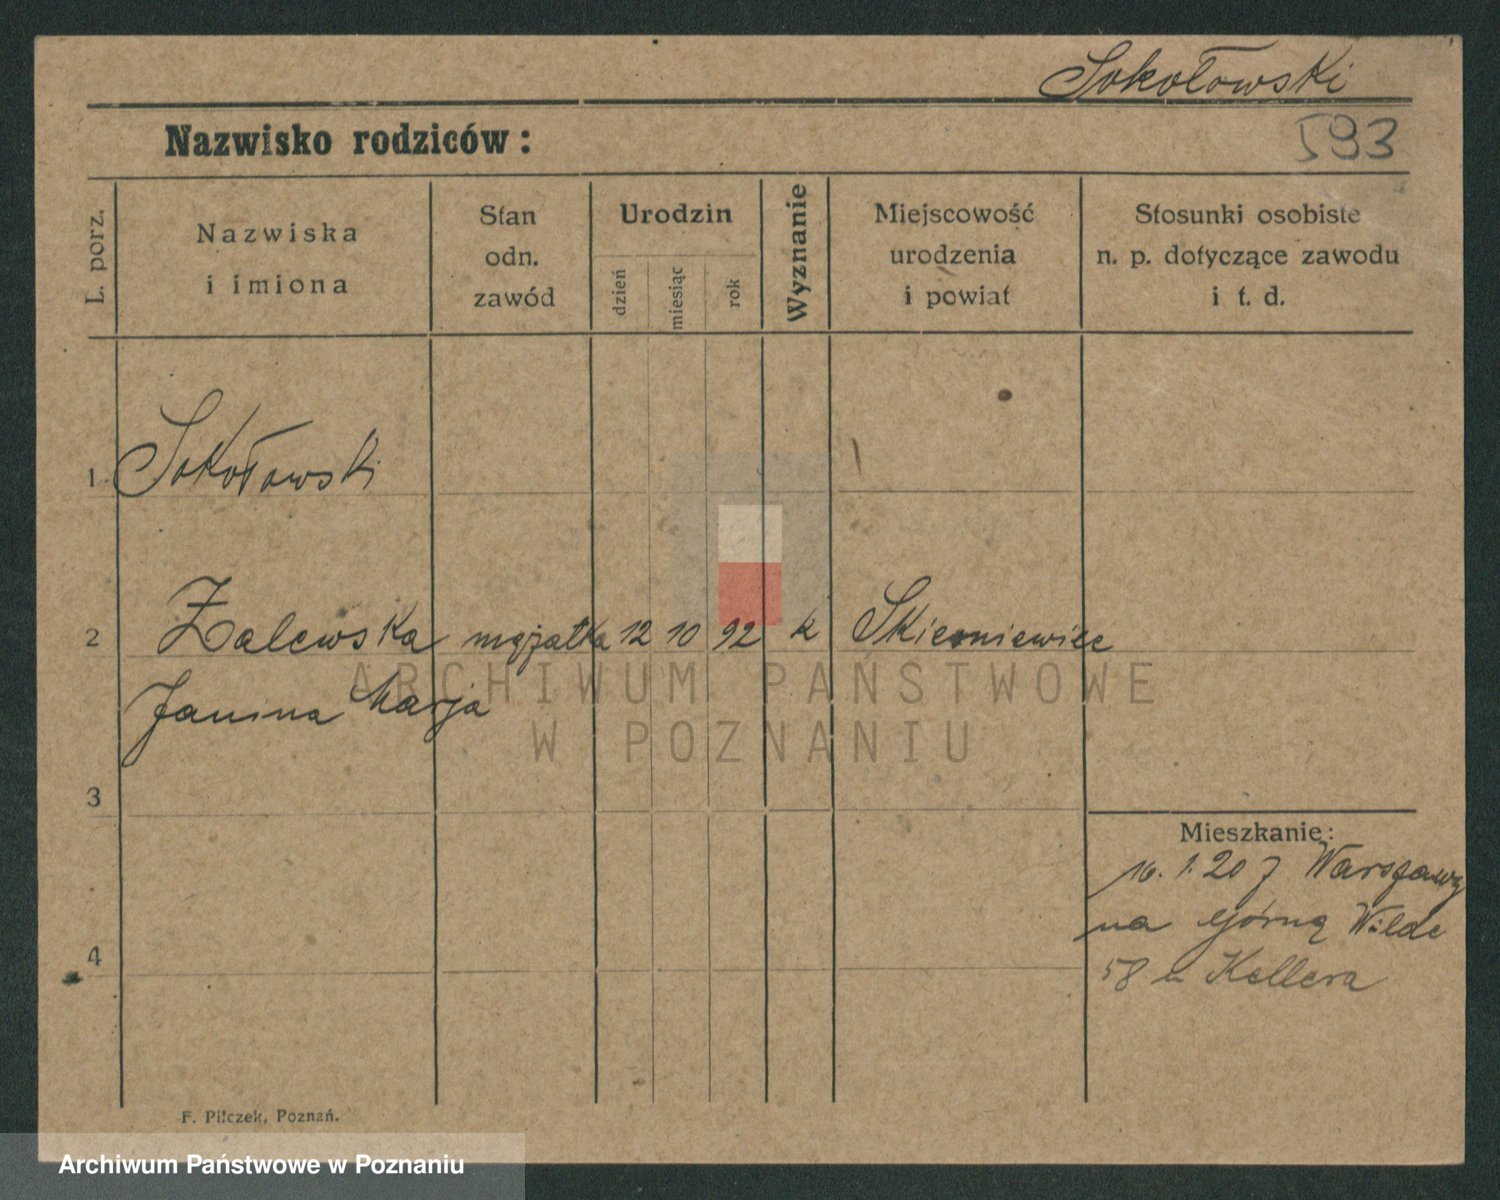 Sokołowski
Nazwisko rodziców:
593
L. porz.
Nazwiska
i imiona
Stan
odn.
zawód
Urodzin
dzień
miesiąc
rok
Wyznanie
Miejscowość
urodzenia
i powiat
Stosunki osobiste
n. p. dotyczące zawodu
i t. d.
1 Sokołowski
2 Zalewska mężatka 12 10 92 k Skierniewice
Janina Marja
ARCHIWUM PAŃSTWOWE
W POZNANIU
3
Mieszkanie:
16. 1. 20 z Warszawy
na Górną Wilde
58 u Kellera
4
F. Pilczek, Poznań.
Archiwum Państwowe w Poznaniu